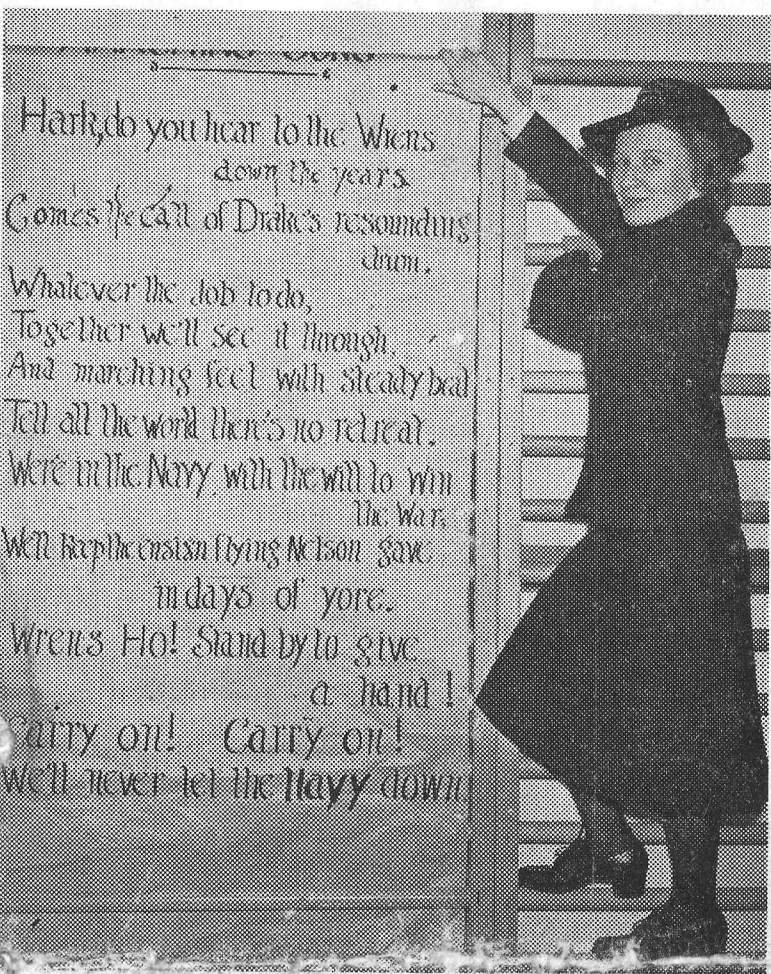 Song
Hark, do you hear to the Wrens
down the years
Comes the call of Drake's resounding
drum.
Whatever the Job to do,
Together we'll see it through.
And marching feet with steady beat
Tell all the world there's no retreat.
We're in the Navy, with the will to Win
The War,
We'll keep the ensign flying Nelson gave
in days of yore.
Wrens Ho! Stand by to give
a hand!
Carry on! Carry on!
We'll never let the Navy down